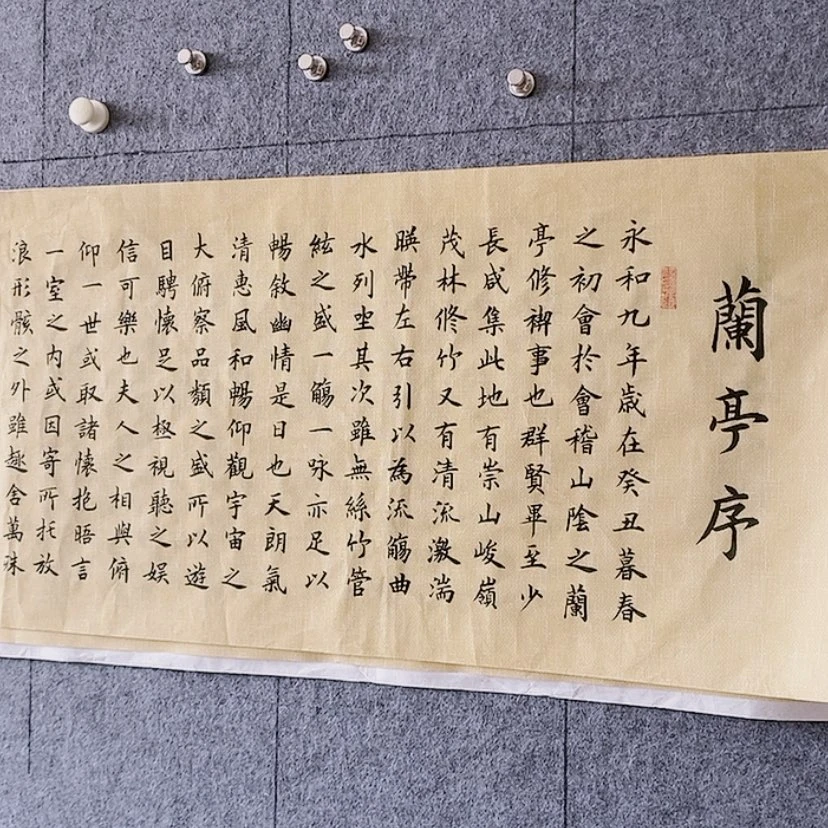 蘭亭序
永和九年歲在癸丑暮春
之初會於會稽山陰之蘭
亭修禊事也群賢畢至少
長咸集此地有崇山峻嶺
茂林修竹又有清流激湍
暎帶左右引以為流觴曲
水列坐其次雖無絲竹管
絃之盛一觴一咏亦足以
暢敘幽情是日也天朗氣
清惠風和暢仰觀宇宙之
大俯察品類之盛所以遊
目騁懷足以極視聽之娛
信可樂也夫人之相與俯
仰一世或取諸懷抱晤言
一室之内或因寄所托放
浪形骸之外雖趣舍萬殊